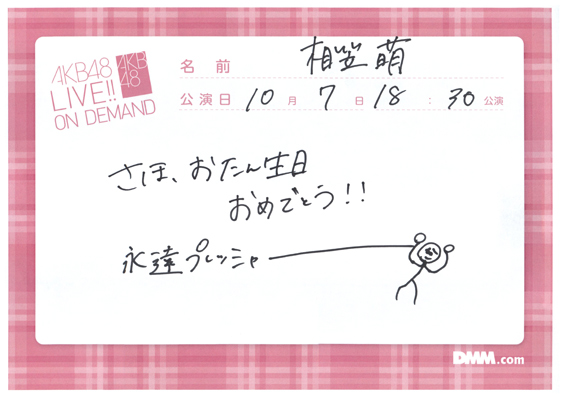 AKB48
LIVE!!
ON DEMAND
AKB
48
名前 相笠 萌
公演日 10月 7日 18:30公演
さほ、おたん生日
おめでとう!!
永遠プレッシャー
DMM.com